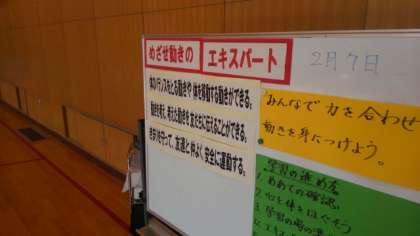 めざせ動きの エキスパート
2月7日
体のバランスをとる動きや 体を移動する動きができる。
動きを考え、考えた動きを 友だちに伝えることができる。
きまりを守って、友達と仲よく 安全に運動する。
みんなで 力を合わせ
動きを身につけよう。
学習の進め方
1 めあての確認
2 心と体をほぐそう
3 学習の場の準